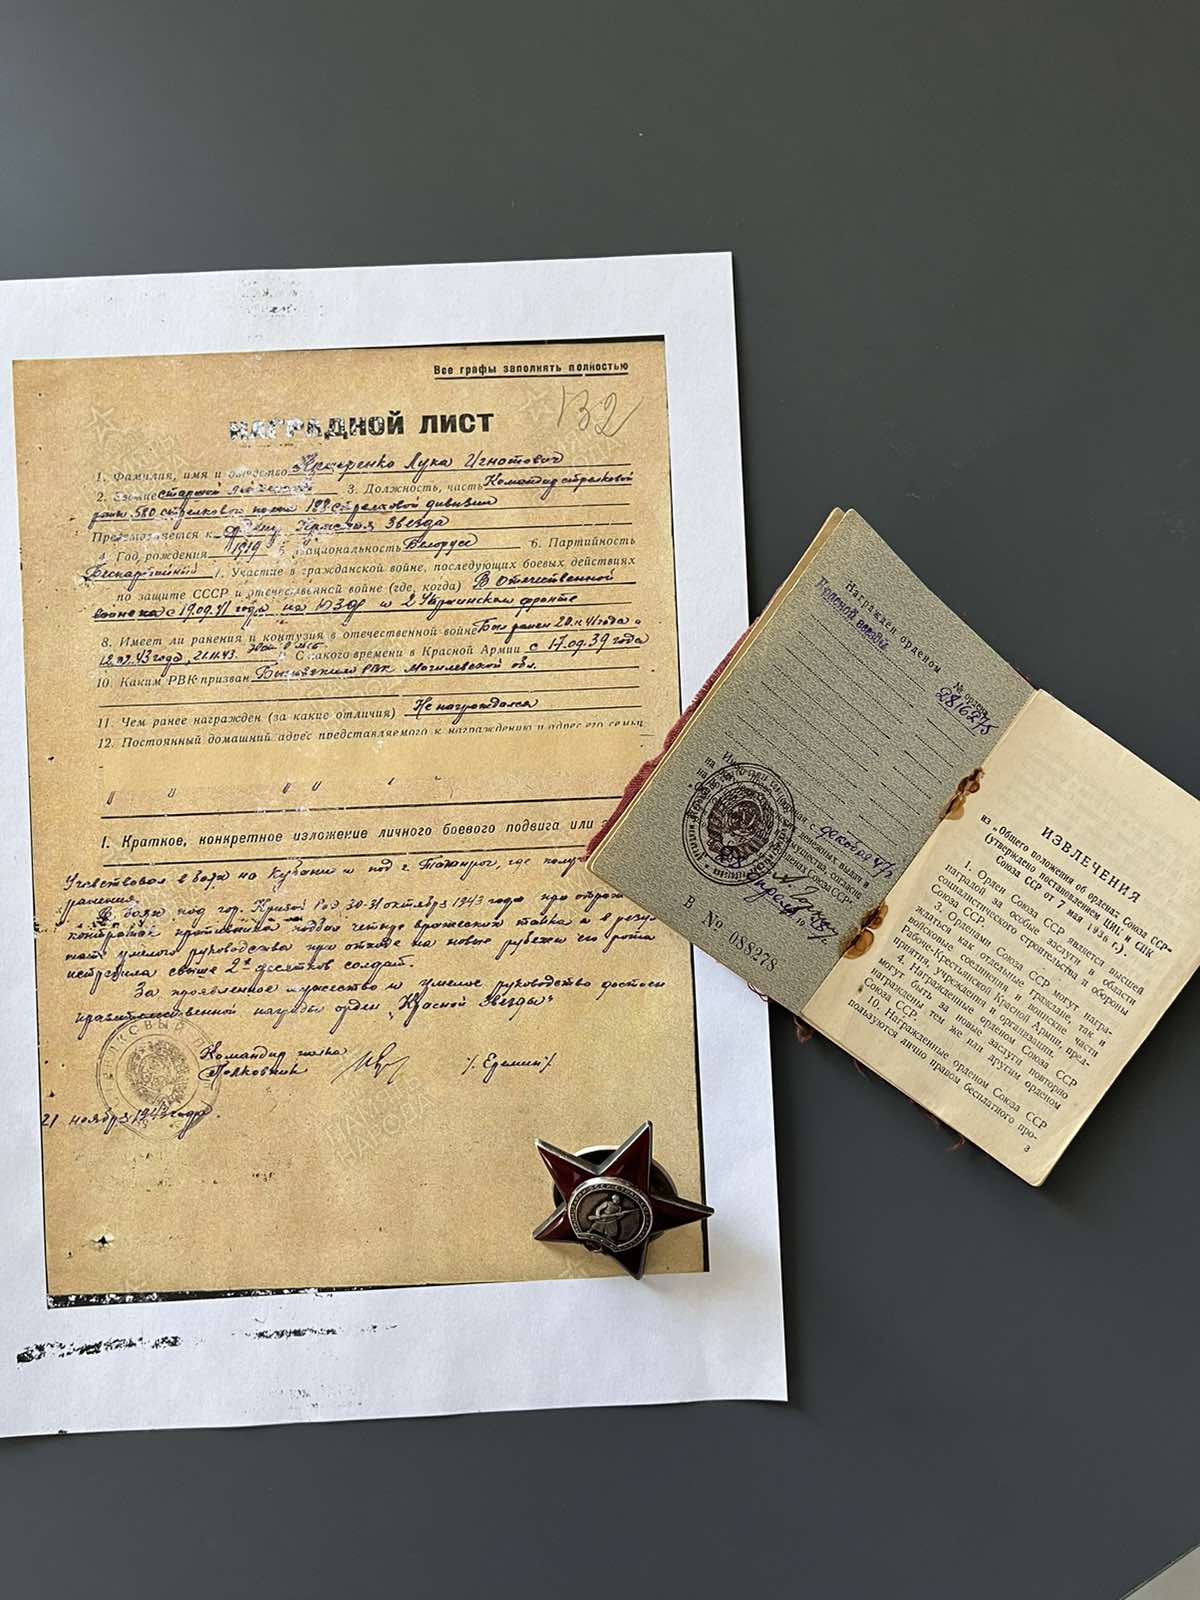 Все графы заполнять полностью
132
НАГРАДНОЙ ЛИСТ
1. Фамилия, имя и отчество Лука Игнотович
2. Звание старший лейтенант 3. Должность, часть Командир стрелковой
роты 580 стрелкового полка 188 стрелковой дивизии
Представляется к ордену Красная Звезда
4. Год рождения 1919 5. Национальность Белорус 6. Партийность
Беспартийный 7. Участие в гражданской войне, последующих боевых действиях
по защите СССР и отечественной войне (где, когда) В отечественной
войне с 19.09.41 года на ЮЗФ и 2 Украинском фронте
8. Имеет ли ранения и контузии в отечественной войне Был ранен 20.11.41 года и
12.02.43 года, 21.11.43. 9. С какого времени в Красной Армии с 17.09.39 года
10. Каким РВК призван РВК Могилевской обл.
11. Чем ранее награжден (за какие отличия) Не награждался
12. Постоянный домашний адрес представляемого к награждению и адрес его семьи
I. Краткое, конкретное изложение личного боевого подвига или
Участвовал в боях на Кубани и под г. Таганрог, где
ранения.
В боях под гор. Кривой Рог 30-31 октября 1943 года при
контратак противника подбил четыре вражеских танка и в
умелого руководства при отходе на новые рубежи его рота
истребила свыше 2х десятков солдат.
За проявленное мужество и умелое руководство достоин
правительственной награды орден „Красной Звезды"
Командир полка
Полковник
21 ноября 1943 года.
Награжден орденом
№ ордена
Красной звезды
2816275
декабря 47г.
денежных выдач и
ордена Союза ССР"
апреля
В № 088278
ИЗВЛЕЧЕНИЯ
из „Общего положения об орденах Союза ССР"
(утверждено постановлением ЦИК и СНК
Союза ССР от 7 мая 1936 г.).
1. Орден Союза ССР является высшей
наградой за особые заслуги в области
социалистического строительства и обороны
Союза ССР.
3. Орденами Союза ССР могут награ-
ждаться как отдельные граждане, так и
войсковые соединения и воинские части
Рабоче-Крестьянской Красной Армии, пред-
приятия, учреждения и организации.
4. Награжденные орденом Союза ССР
могут быть за новые заслуги повторно
награждены тем же или другим орденом
Союза ССР.
10. Награжденные орденом Союза ССР
пользуются лично правом бесплатного про-
3